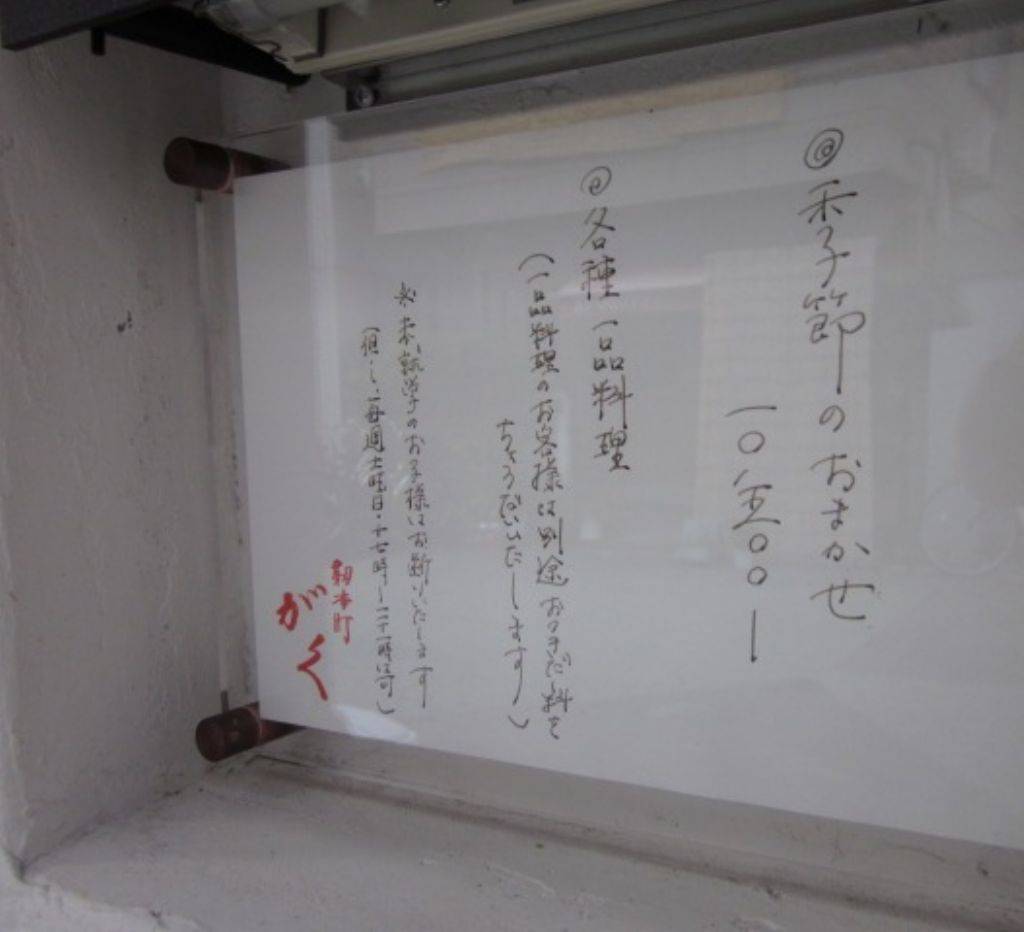 ◎季節のおまかせ
一〇、五〇〇ー
◎各種一品料理
(一品料理のお客様は別途おつきだし料を
ちょうだいいたします)
※未就学のお子様はお断りいたします
(但し、毎週土曜日・十七時〜二十一時は可)
靱本町
がく